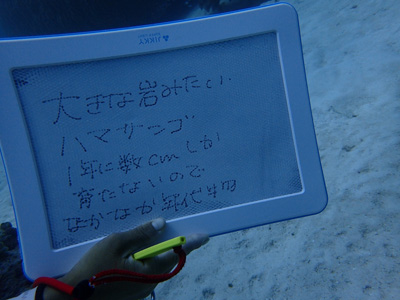 大きな岩みたい
ハマサンゴ
1年に数cmしか
育たないので
なかなか年代物